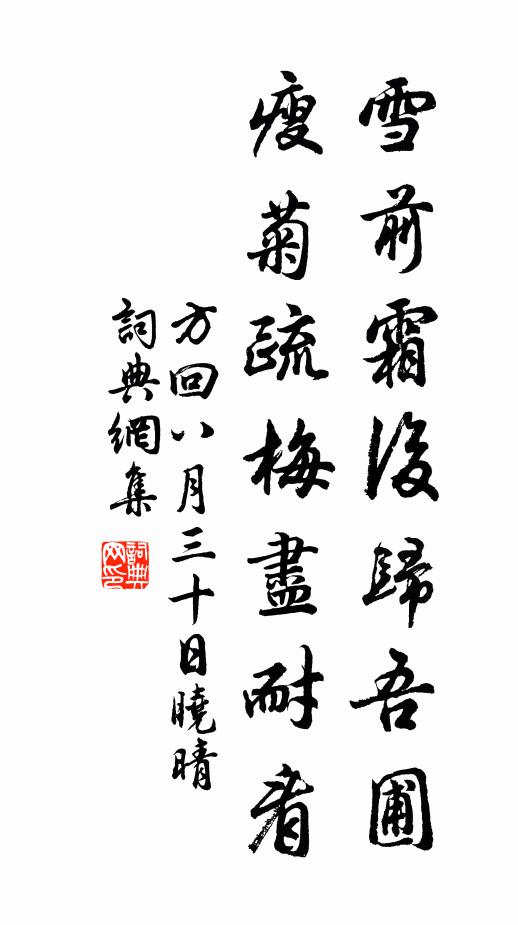 雪前霜後歸吾圃
瘦菊疏梅盡耐看
方回八月三十日曉晴
詞典網集
詞典网印